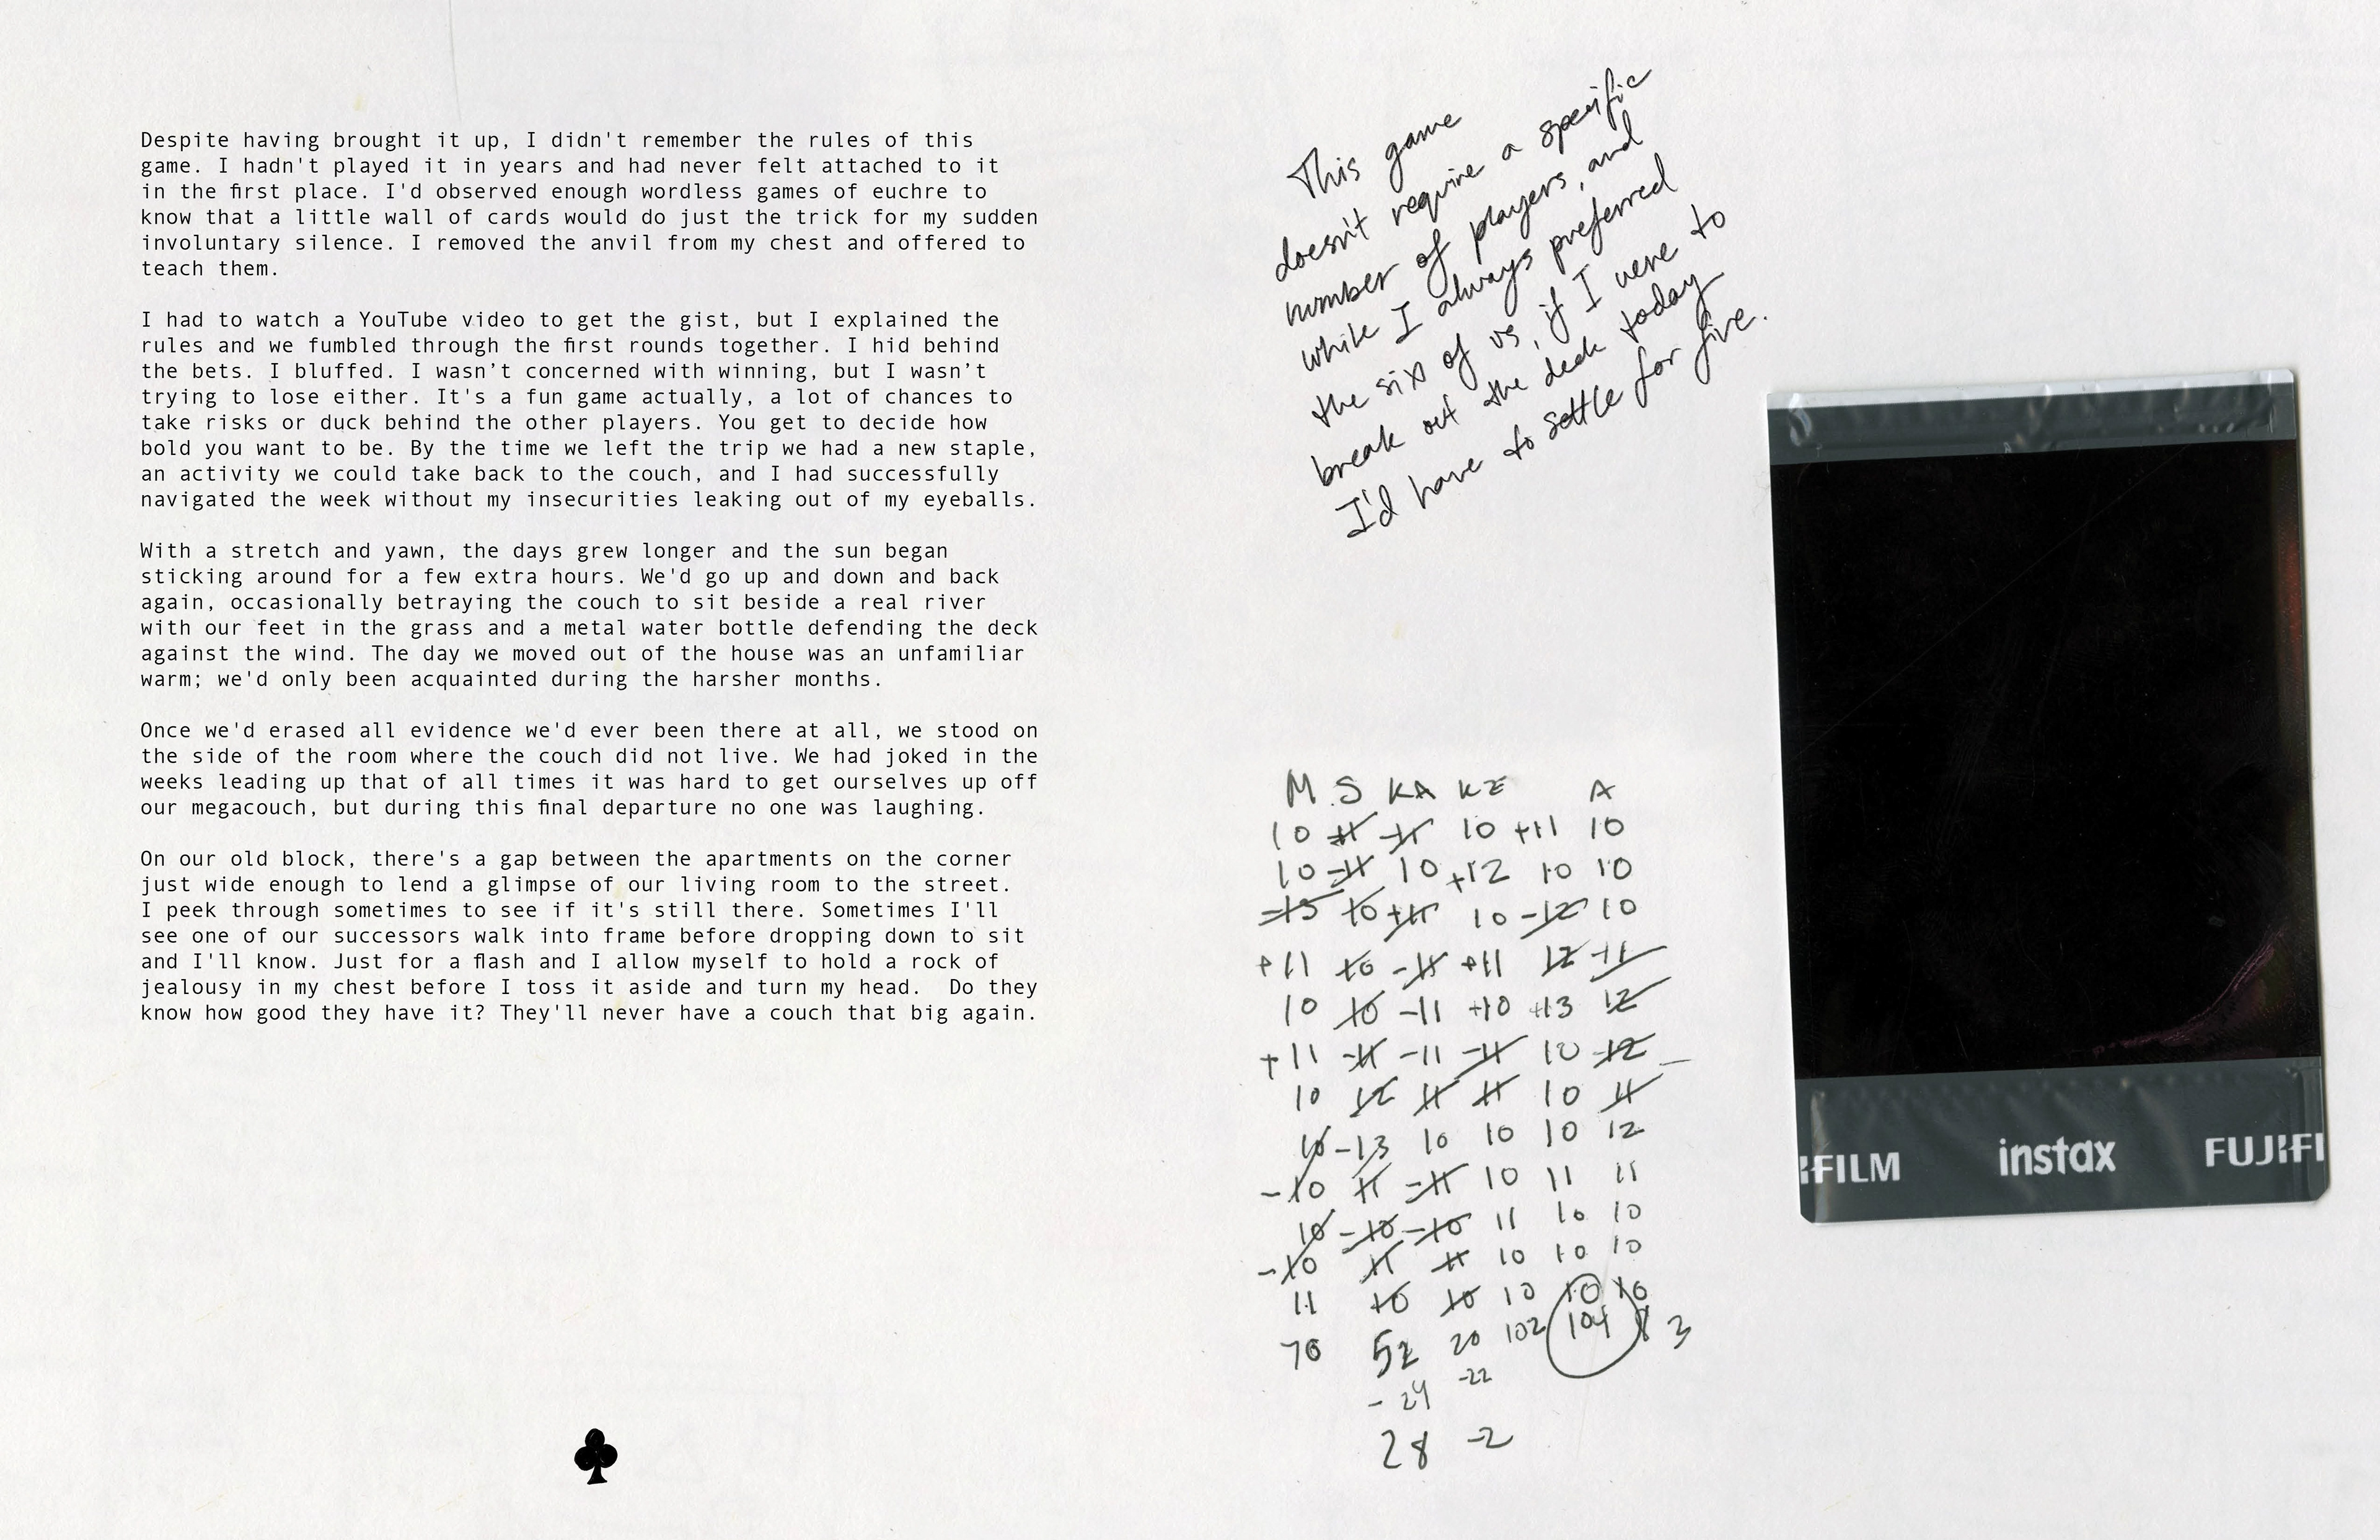 Despite having brought it up, I didn't remember the rules of this
game. I hadn't played it in years and had never felt attached to it
in the first place. I'd observed enough wordless games of euchre to
know that a little wall of cards would do just the trick for my sudden
involuntary silence. I removed the anvil from my chest and offered to
teach them.
I had to watch a YouTube video to get the gist, but I explained the
rules and we fumbled through the first rounds together. I hid behind
the bets. I bluffed. I wasn’t concerned with winning, but I wasn’t
trying to lose either. It's a fun game actually, a lot of chances to
take risks or duck behind the other players. You get to decide how
bold you want to be. By the time we left the trip we had a new staple,
an activity we could take back to the couch, and I had successfully
navigated the week without my insecurities leaking out of my eyeballs.
With a stretch and yawn, the days grew longer and the sun began
sticking around for a few extra hours. We'd go up and down and back
again, occasionally betraying the couch to sit beside a real river
with our feet in the grass and a metal water bottle defending the deck
against the wind. The day we moved out of the house was an unfamiliar
warm; we'd only been acquainted during the harsher months.
Once we'd erased all evidence we'd ever been there at all, we stood on
the side of the room where the couch did not live. We had joked in the
weeks leading up that of all times it was hard to get ourselves up off
our megacouch, but during this final departure no one was laughing.
On our old block, there's a gap between the apartments on the corner
just wide enough to lend a glimpse of our living room to the street.
I peek through sometimes to see if it's still there. Sometimes I'll
see one of our successors walk into frame before dropping down to sit
and I'll know. Just for a flash and I allow myself to hold a rock of
jealousy in my chest before I toss it aside and turn my head.  Do they
know how good they have it? They'll never have a couch that big again.
This game
doesn't require a specific
number of players, and
while I always preferred
the six of us, if I were to
break out the deck today
I'd have to settle for five.
M S KA KE A
10 -11 -11 10 +11 10
10 -11 10 +12 10 10
-13 10 +11 10 -12 10
+11 10 -11 +11 12 -11
10 10 -11 +10 +13 12
+11 -11 -11 -11 10 -12
10 12 11 11 10 11
10 -13 10 10 10 12
-10 11 -11 10 11 11
10 -10 -10 11 10 10
-10 11 11 10 10 10
11 10 10 10 10 10
70 52 20 102 104 83
-24 -22
28 -2
FILM instax FUJIFI